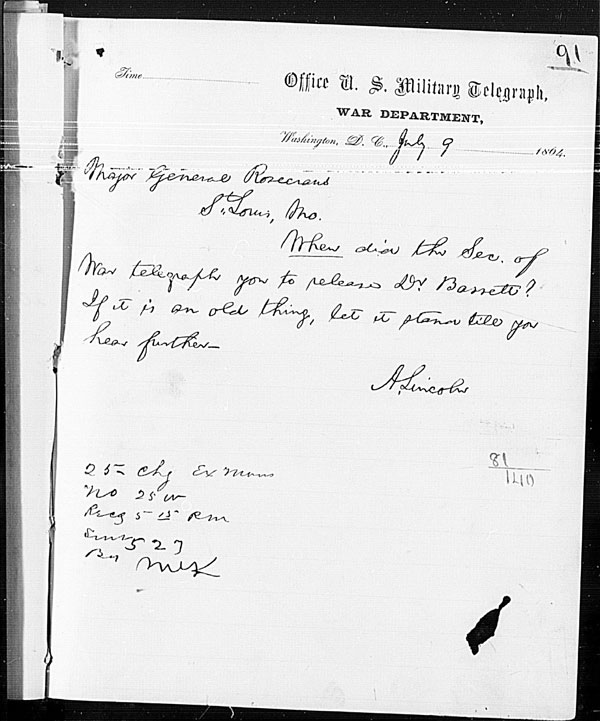 91
Time
Office U. S. Military Telegraph,
WAR DEPARTMENT,
Washington, D. C., July 9 1864.
Major General Rosecrans
St. Louis, Mo.
When did the Sec. of
War telegraph you to release Dr. Barrett?
If it is an old thing, let it stand till you
hear further—
A. Lincoln
81
140
25 Chg Ex
No 25 W
Recd 5 15 PM
Sent 5 27
By McK